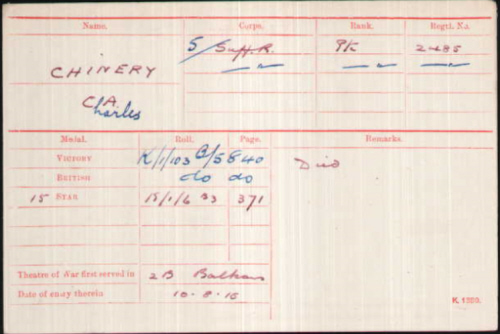 Name. Corps. Rank. Regtl. No.
CHINERY 5/Suff. R. Pte 2485
C.A.
harles
Medal. Roll. Page. Remarks.
VICTORY K/1/103 B/5 840 Died
BRITISH do do
15 STAR 15/1/6 B3 371
Theatre of War first served in 2B Balkans
Date of entry therein 10-8-15
K. 1380.